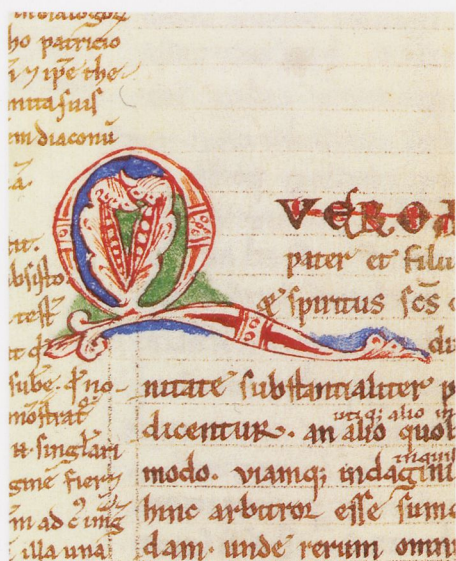 ho patricio
ipe the
suis
m diaconū
absisto
test
sube. no-
mostrat
singlari
gine fieri
m ad
illa una
QVERO
pater et filii
& spiritus scs
du
nitate substantialiter p
utiq; alio
dicentur. an alio quol
modo. viamq; indagini
hinc arbitror esse sum
dam. unde rerum omni